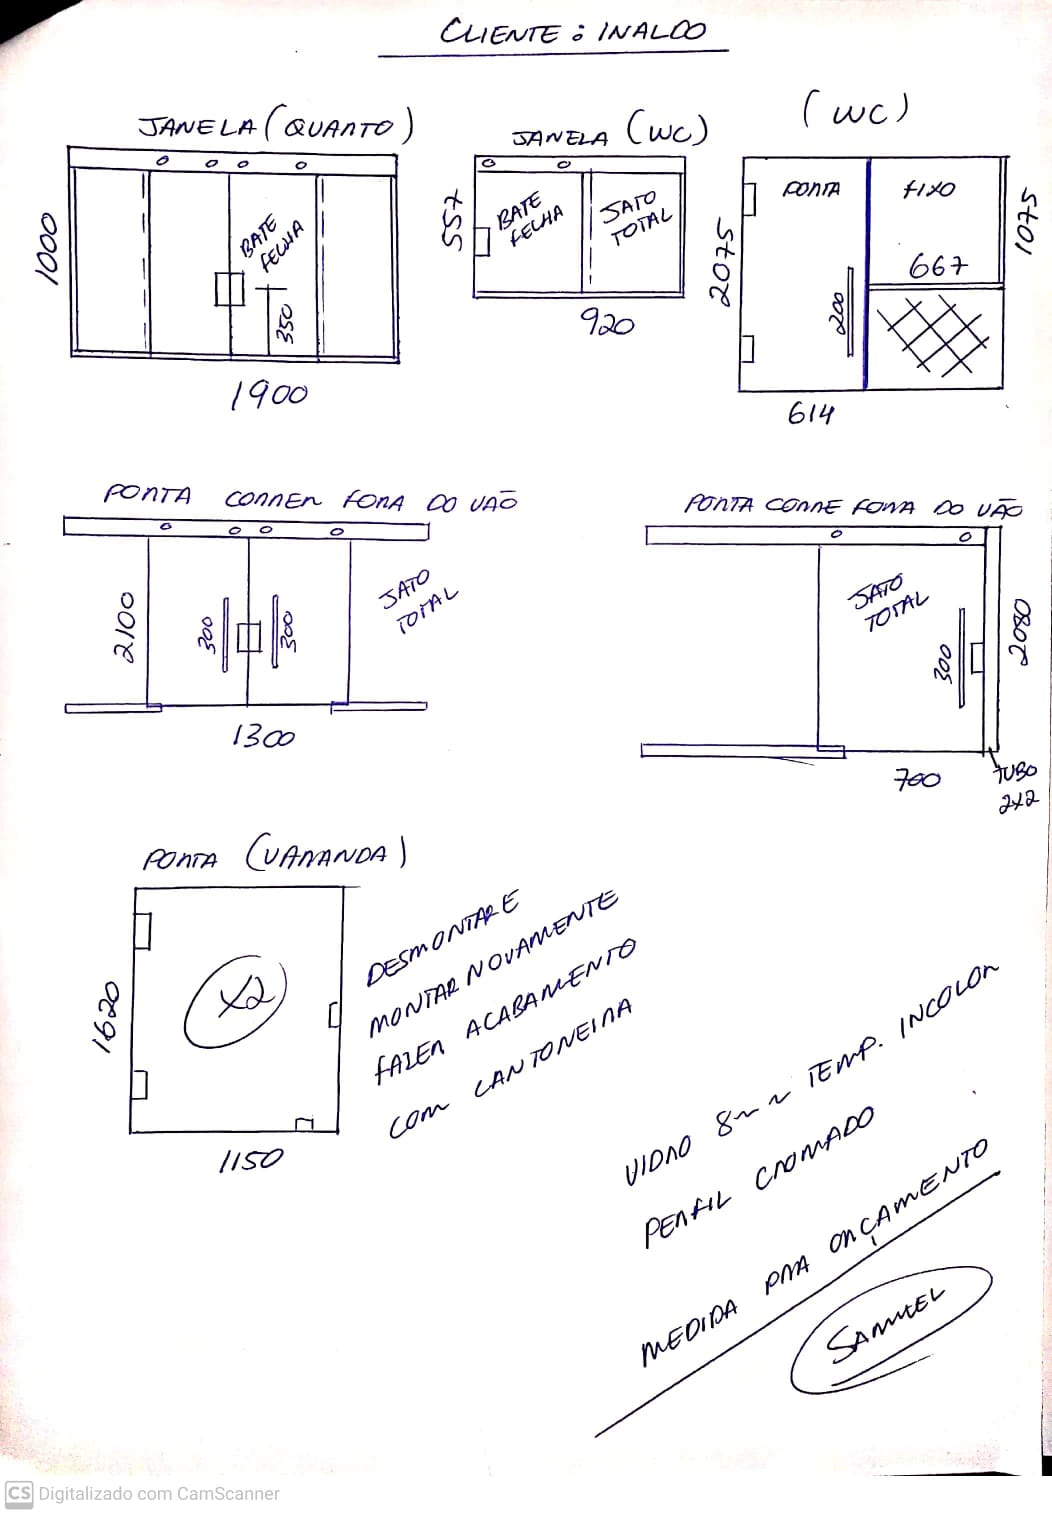 CLIENTE: INALDO
JANELA (QUARTO)
JANELA (WC)
(WC)
1000
BATE
FECHA
350
1900
557
BATE
FECHA
SATO
TOTAL
920
2075
PORTA
FIXO
667
200
1075
614
PORTA CORRER FORA DO VÃO
2100
300
300
SATO
TOTAL
1300
PORTA CORRE FORA DO VÃO
SATO
TOTAL
300
2080
700
TUBO
2X2
PORTA (VARANDA)
1620
X2
1150
DESMONTAR E
MONTAR NOVAMENTE
FAZER ACABAMENTO
COM CANTONEIRA
VIDRO 8mm TEMP. INCOLOR
PERFIL CROMADO
MEDIDA PRA ORÇAMENTO
SAMUEL
CS Digitalizado com CamScanner